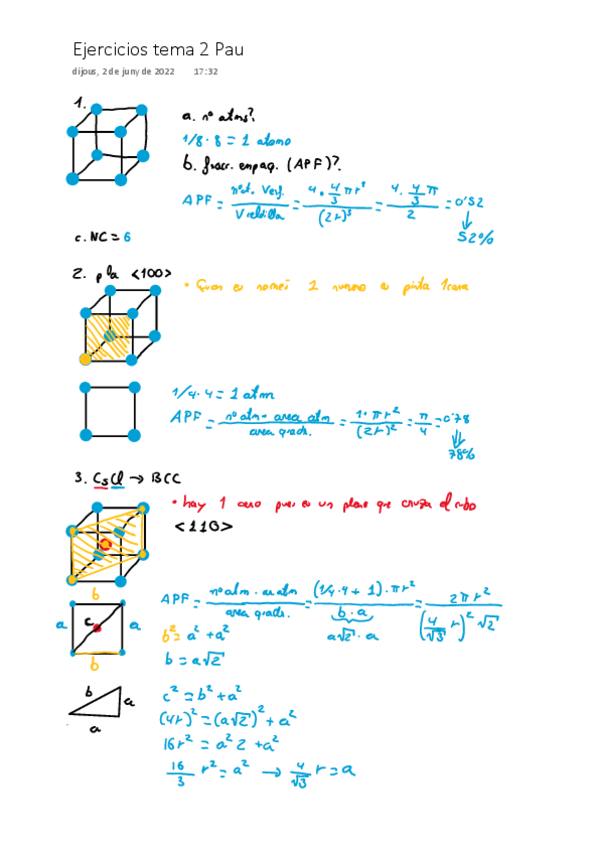 Ejercicios tema 2 Pau
dijous, 2 de juny de 2022 17:32
1.
a. nº atms?
1/8 · 8 = 1 atomo
b. fracc. empaq. (APF)?
APF = nºat. Vesf. / V celdilla = 4 · 4/3 πr³ / (2r)³ = 4 · 4/3 π / 2 = 0'52
52%
c. NC = 6
2. pla <100>
1 pinta 1 cara
1/4 · 4 = 1 atm
APF = nº atm · area atm / area quadr. = 1 · πr² / (2r)² = π/4 = 0'78
78%
3. CsCl → BCC
• hay 1 cero pues es un plano que cruza el cubo
<110>
b
APF = nº atm · ar atm / area quadr. = (1/4 · 4 + 1) · πr² / b · a = 2πr² / (4/√3 r)² √2
a√2 · a
a c a
b
b² = a² + a²
b = a√2
b a
a
c² = b² + a²
(4r)² = (a√2)² + a²
16r² = a² 2 + a²
16/3 r² = a² → 4/√3 r = a